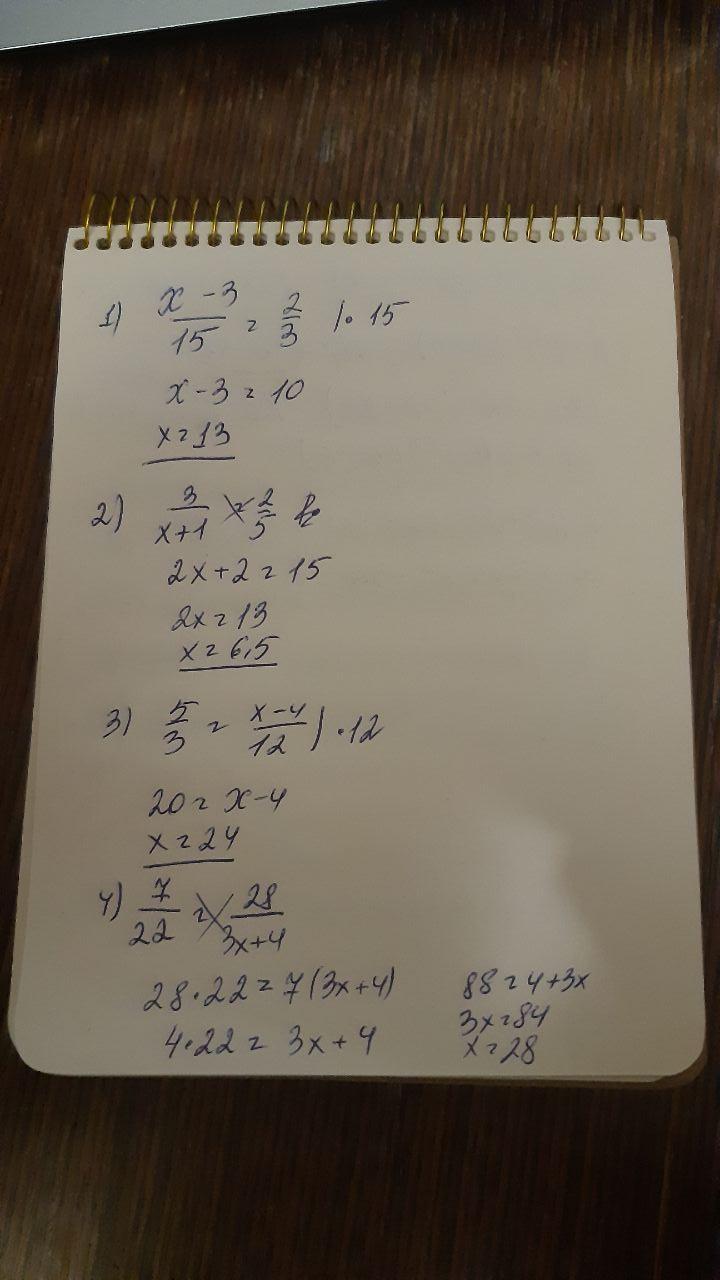 1) x-3/15 = 2/3 |· 15
x-3 = 10
x = 13
2) 3/x+1 = 2/5
2x+2 = 15
2x = 13
x = 6,5
3) 5/3 = x-4/12 | · 12
20 = x-4
x = 24
4) 7/22 = 28/3x+4
28·22 = 7(3x+4)
4·22 = 3x+4
88 = 4+3x
3x = 84
x = 28